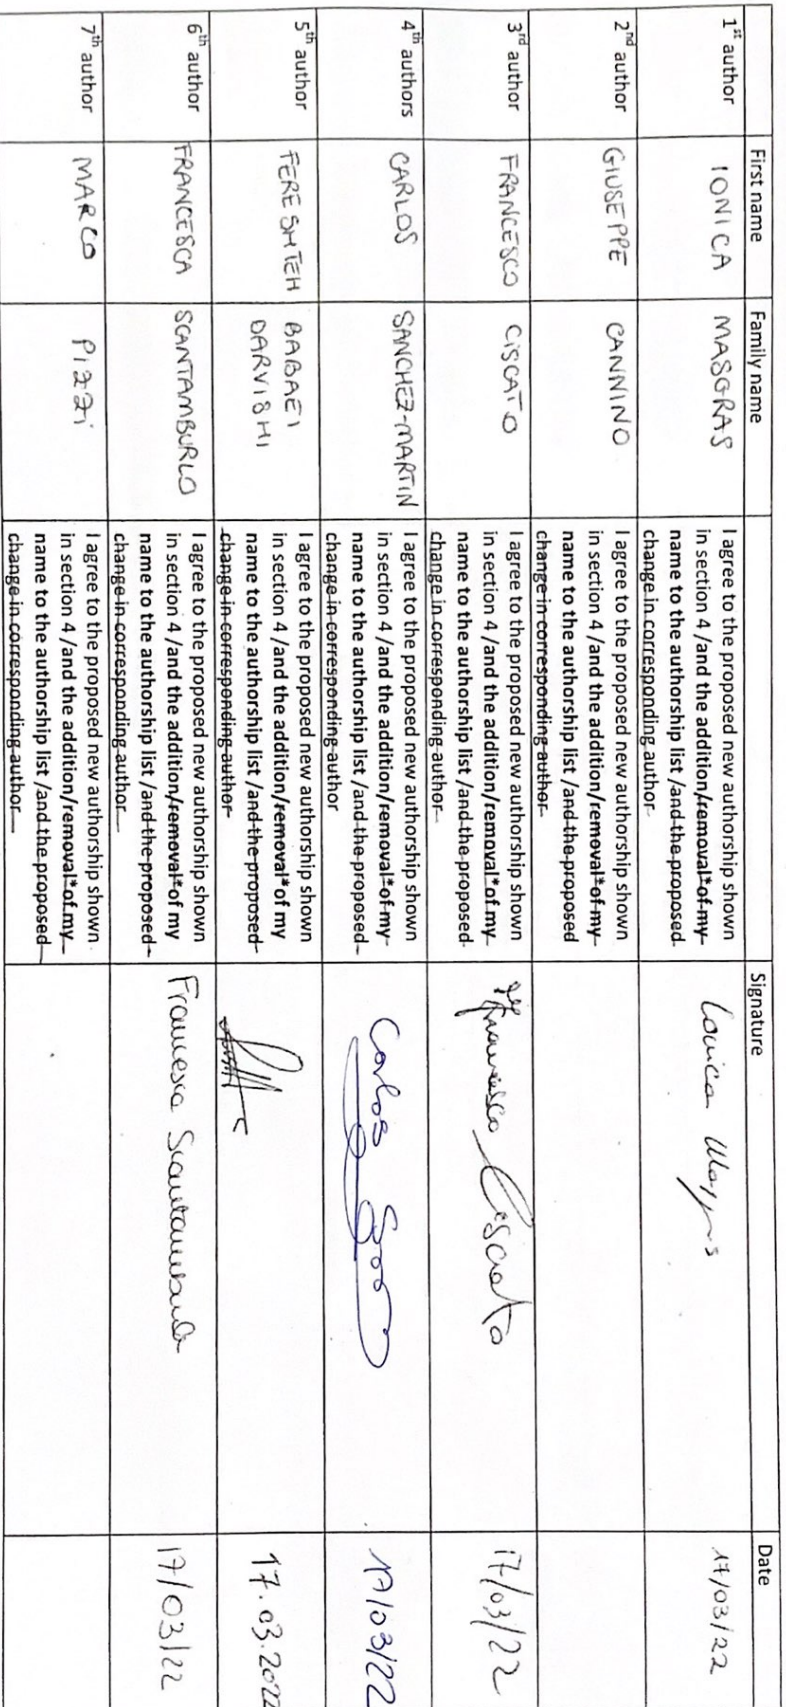 First name Family name Signature Date
1st author IONICA MASGRAS I agree to the proposed new authorship shown
in section 4 /and the addition/removal* of my
name to the authorship list /and the proposed
change in corresponding author
Ionica 17/03/22
2nd author GIUSEPPE CANNINO I agree to the proposed new authorship shown
in section 4 /and the addition/removal* of my
name to the authorship list /and the proposed
change in corresponding author
3rd author FRANCESCO CISCATO I agree to the proposed new authorship shown
in section 4 /and the addition/removal* of my
name to the authorship list /and the proposed
change in corresponding author
Francesco Ciscato 17/03/22
4th authors CARLOS SANCHEZ-MARTIN I agree to the proposed new authorship shown
in section 4 /and the addition/removal* of my
name to the authorship list /and the proposed
change in corresponding author
Carlos 17/03/22
5th author FERESHTEH BABAEI
DARVISHI
I agree to the proposed new authorship shown
in section 4 /and the addition/removal* of my
name to the authorship list /and the proposed
change in corresponding author
17.03.2022
6th author FRANCESCA SCANTAMBURLO I agree to the proposed new authorship shown
in section 4 /and the addition/removal* of my
name to the authorship list /and the proposed
change in corresponding author
Francesca Scantamburlo 17/03/22
7th author MARCO PIZZI I agree to the proposed new authorship shown
in section 4 /and the addition/removal* of my
name to the authorship list /and the proposed
change in corresponding author